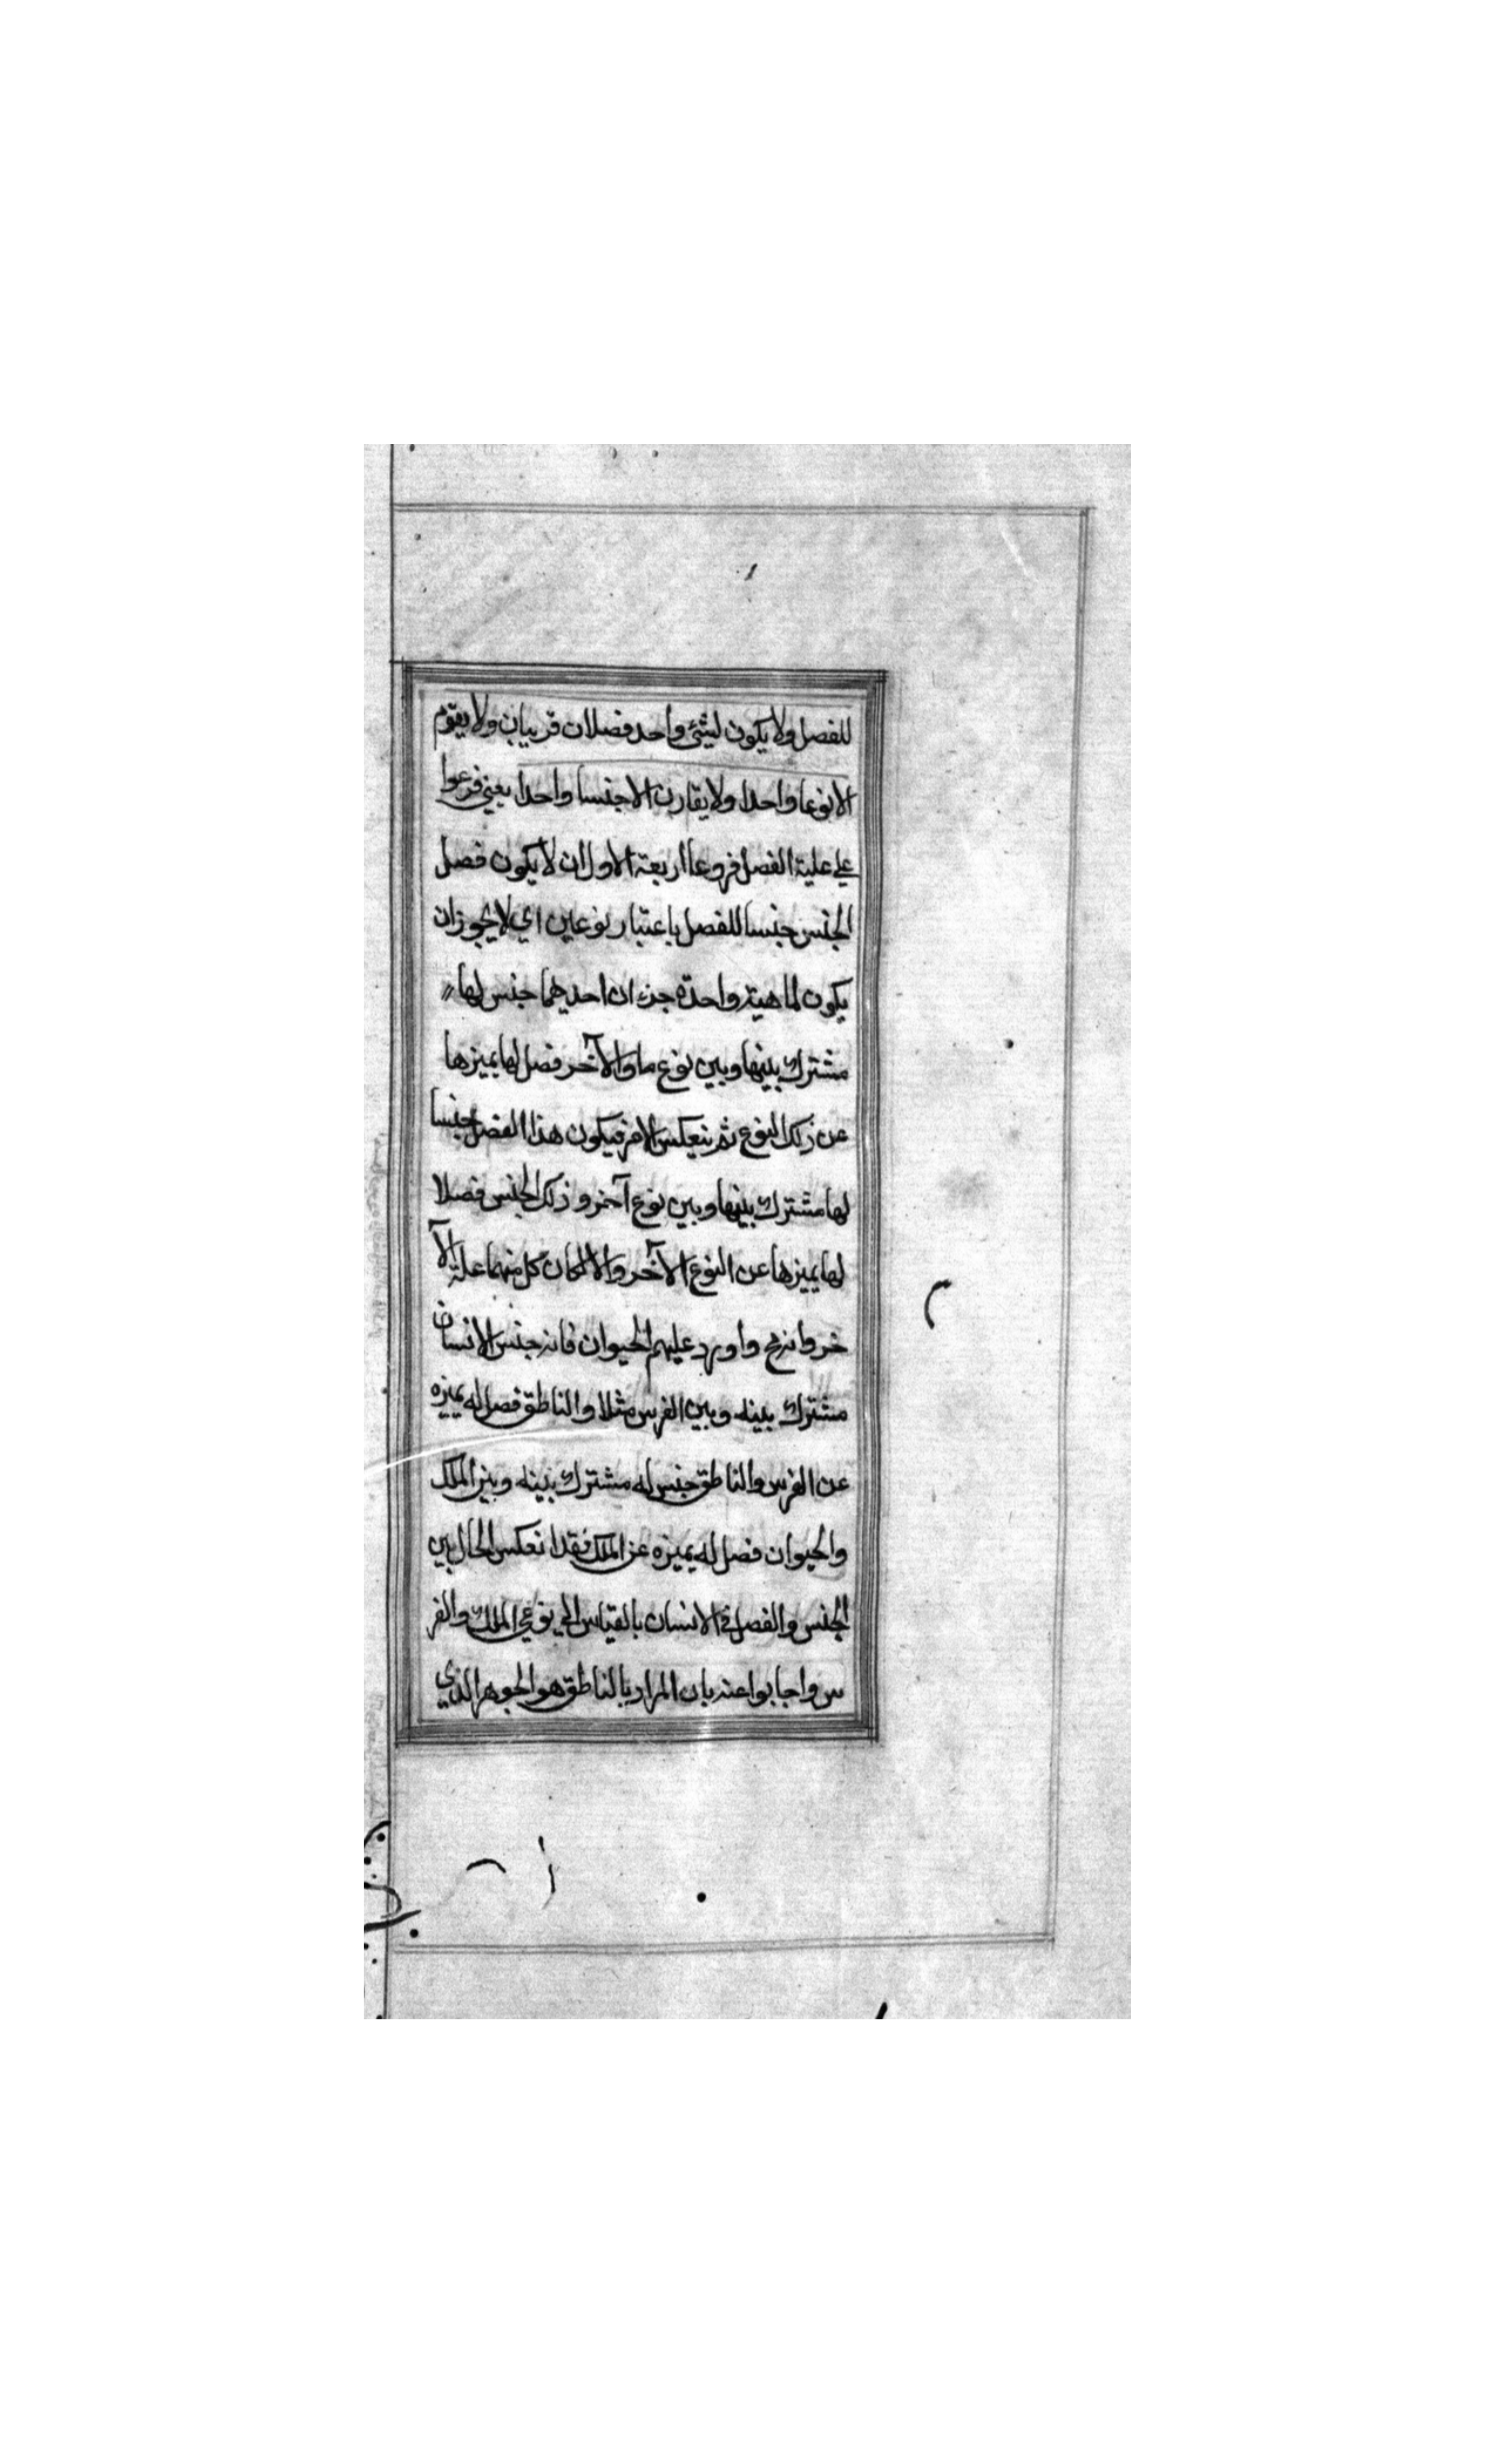 للفصل ولا يكون لشئ واحد فصلان قريبان ولا يقوم
الا نوعا واحدا ولا يقارن الا جنسا واحدا يعني فرعوا
علي علية الفصل فروعا اربعة الاول ان لا يكون فصل
الجنس جنسا للفصل باعتبار نوعين اي لا يجوز ان
يكون لماهية واحدة جزءان احديهما جنس لها
مشترك بينها وبين نوع ما والآخر فصل لها يميزها
عن ذلك النوع ثم ينعكس الامر فيكون هذا الفصل جنسا
لها مشترك بينها وبين نوع آخر وذلك الجنس فصلا
لها يميزها عن النوع الآخر والا لكان كل منهما علة الآ
خر وانه مح واورد عليهم الحيوان فانه جنس الانسان
مشترك بينه وبين الفرس مثلا والناطق فصل له يميزه
عن الفرس والناطق جنس له مشترك بينه وبين الملك
والحيوان فصل له يميزه عن الملك فقد انعكس الحال بين
الجنس والفصل في الانسان بالقياس الي نوعي الملك والفر
س واجابوا عنه بان المراد بالناطق هو الجوهر الذي